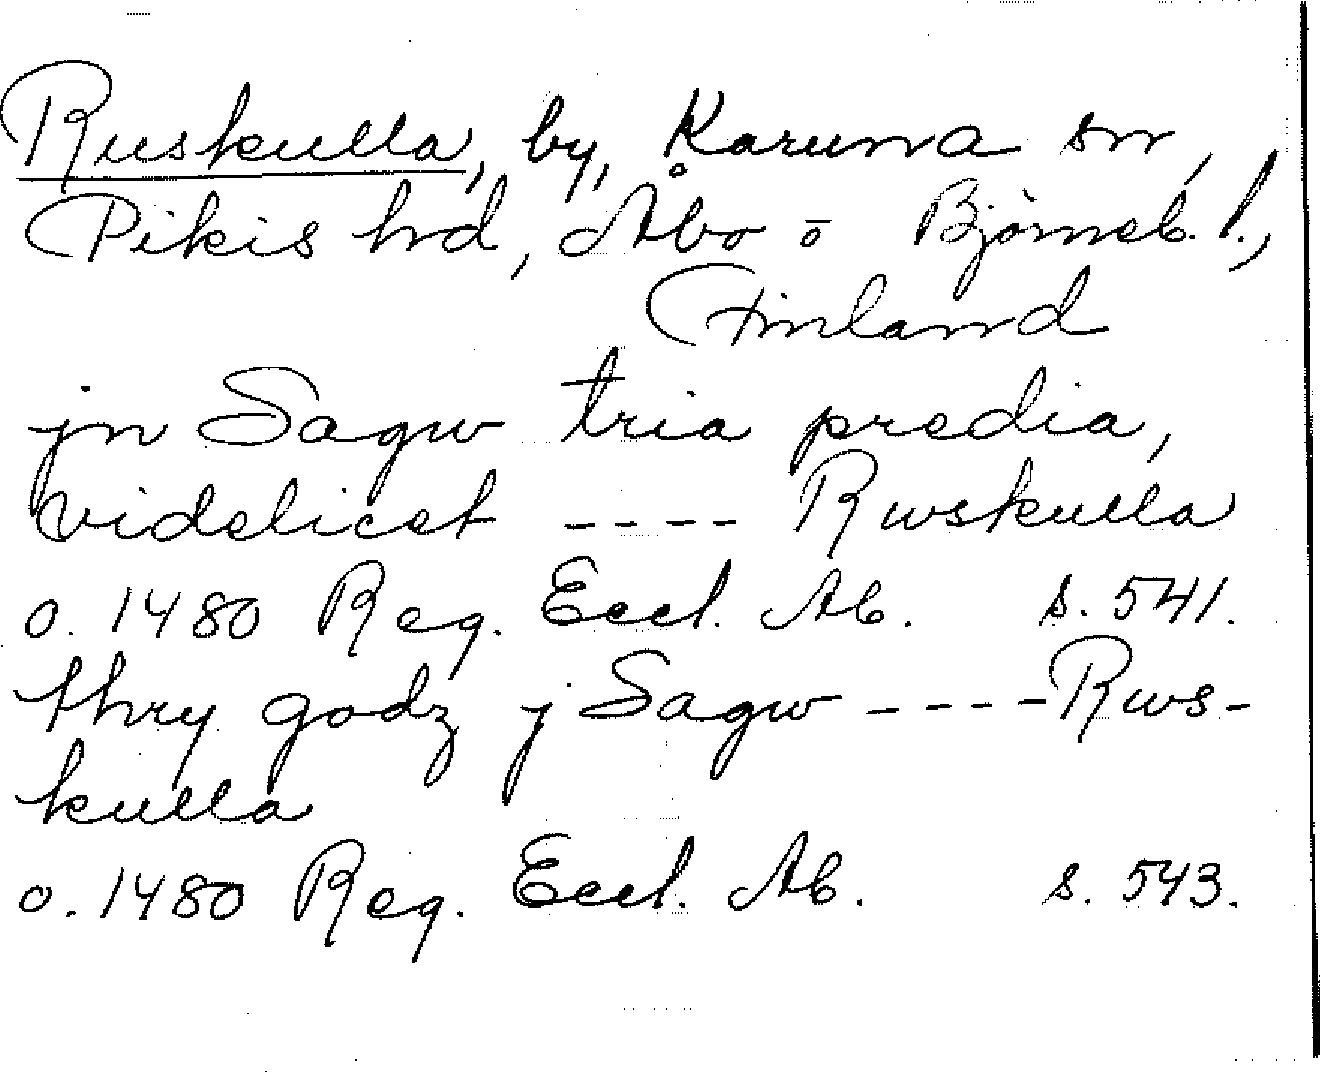 Ruskulla, by, Karuna sn,
Pikis hrd, Åbo o Björneb. l.,
Finland
jn Sagw tria predia,
videlicet ---- Rwskulla
o. 1480 Reg. Eccl. Ab. s. 541.
thry godz j Sagw ---- Rws-
kulla
o. 1480 Reg. Eccl. Ab. s. 543.